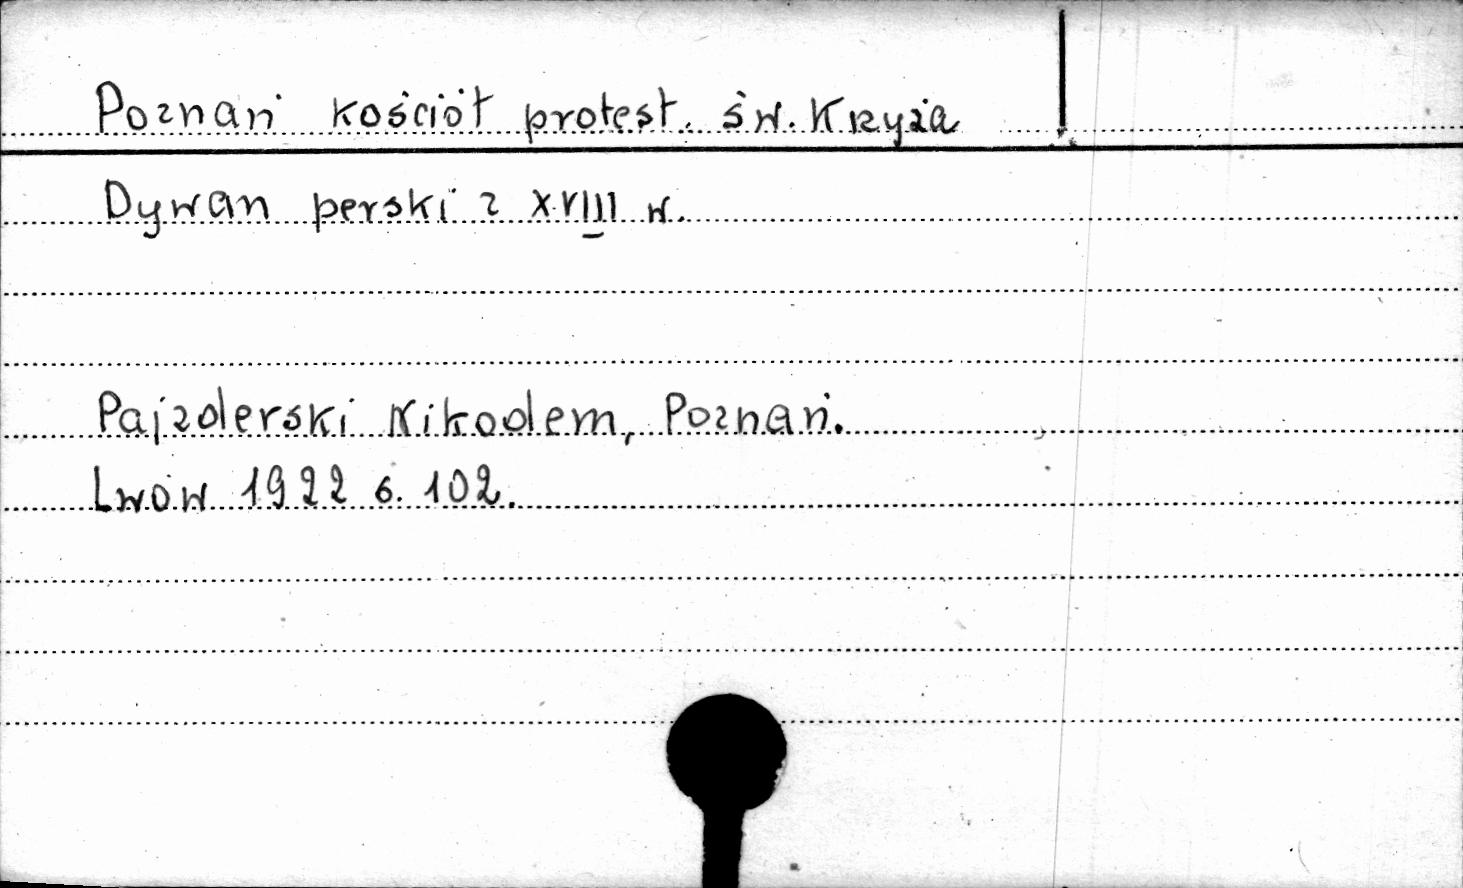 Poznań kościół protest. św. Krzyża
Dywan perski z XVIII w.
Pajzderski Nikodem, Poznań.
Lwów 1922 s. 102.